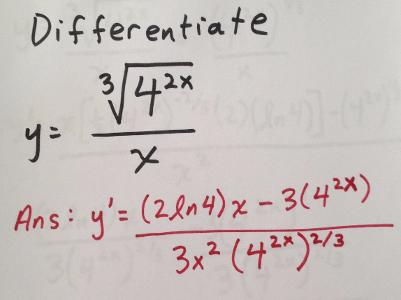 Differentiate
y = ∛(4^(2x)) / x
Ans: y' = ((2ln4)x - 3(4^(2x))) / (3x²(4^(2x))^(2/3))